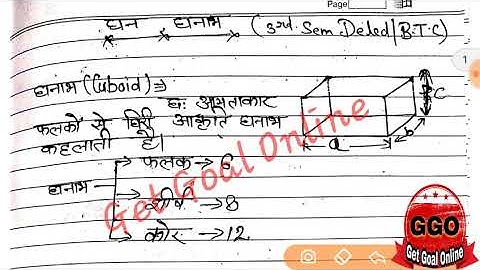 Page No.
घन घनाभ (3rd Sem Deled/B.T.C)
घनाभ (Cuboid) ⇒ छः आयताकार
फलकों से घिरी आकृति घनाभ
कहलाती है।
a b c
फलक → 6
घनाभ शीर्ष → 8
कोर → 12
Get Goal Online
GGO
Get Goal Online
1